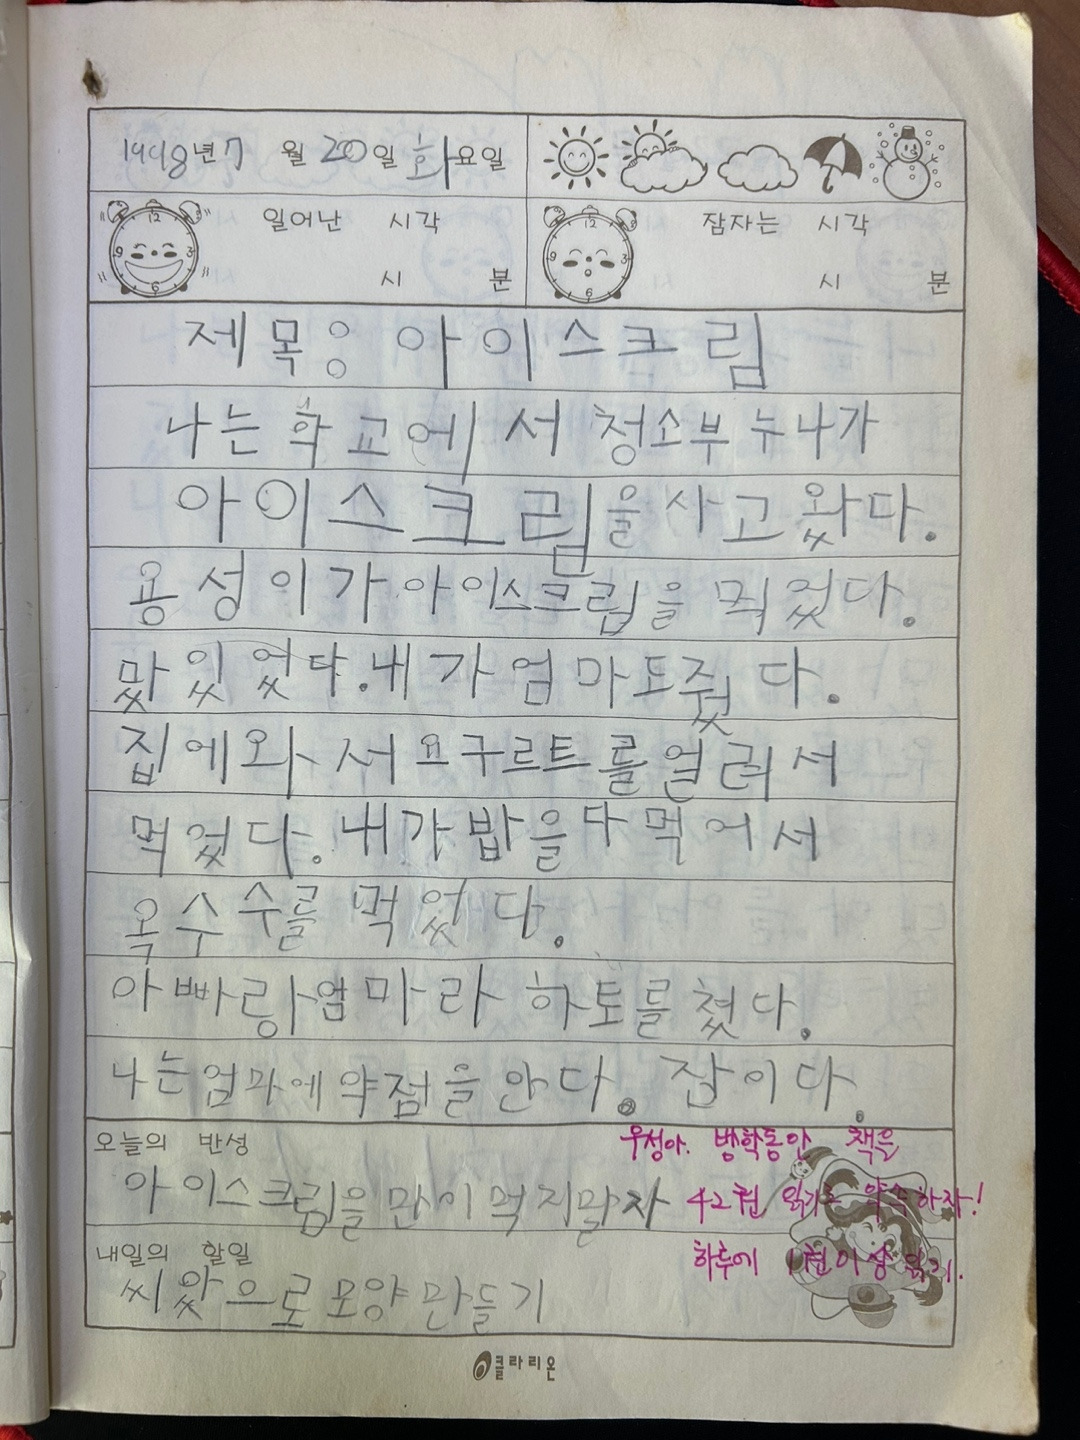 1998년 7월 20일 화요일
일어난 시각
시 분
잠자는 시각
시 분
제목: 아이스크림
나는 학교에서 청소부 누나가
아이스크림을 사고 왔다.
용성이가 아이스크림을 먹었다.
맜있었다. 내가 엄마도 줬다.
집에 와서 요구르트를 얼려서
먹었다. 내가 밥을 다 먹어서
옥수수를 먹었다.
아빠랑 엄마라 하토를 쳤다.
나는 엄마에 약점을 안다. 잠이다.
오늘의 반성
아이스크림을 만이 먹지말자
내일의 할일
씨앗으로 모양 만들기
우성아. 방학동안 책을
42권 읽기로 약속하자!
하루에 1권이상 읽기.
클라리온